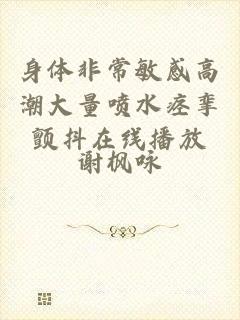 身体非常敏感高
潮大量喷水痉挛
颤抖在线播放
谢枫咏